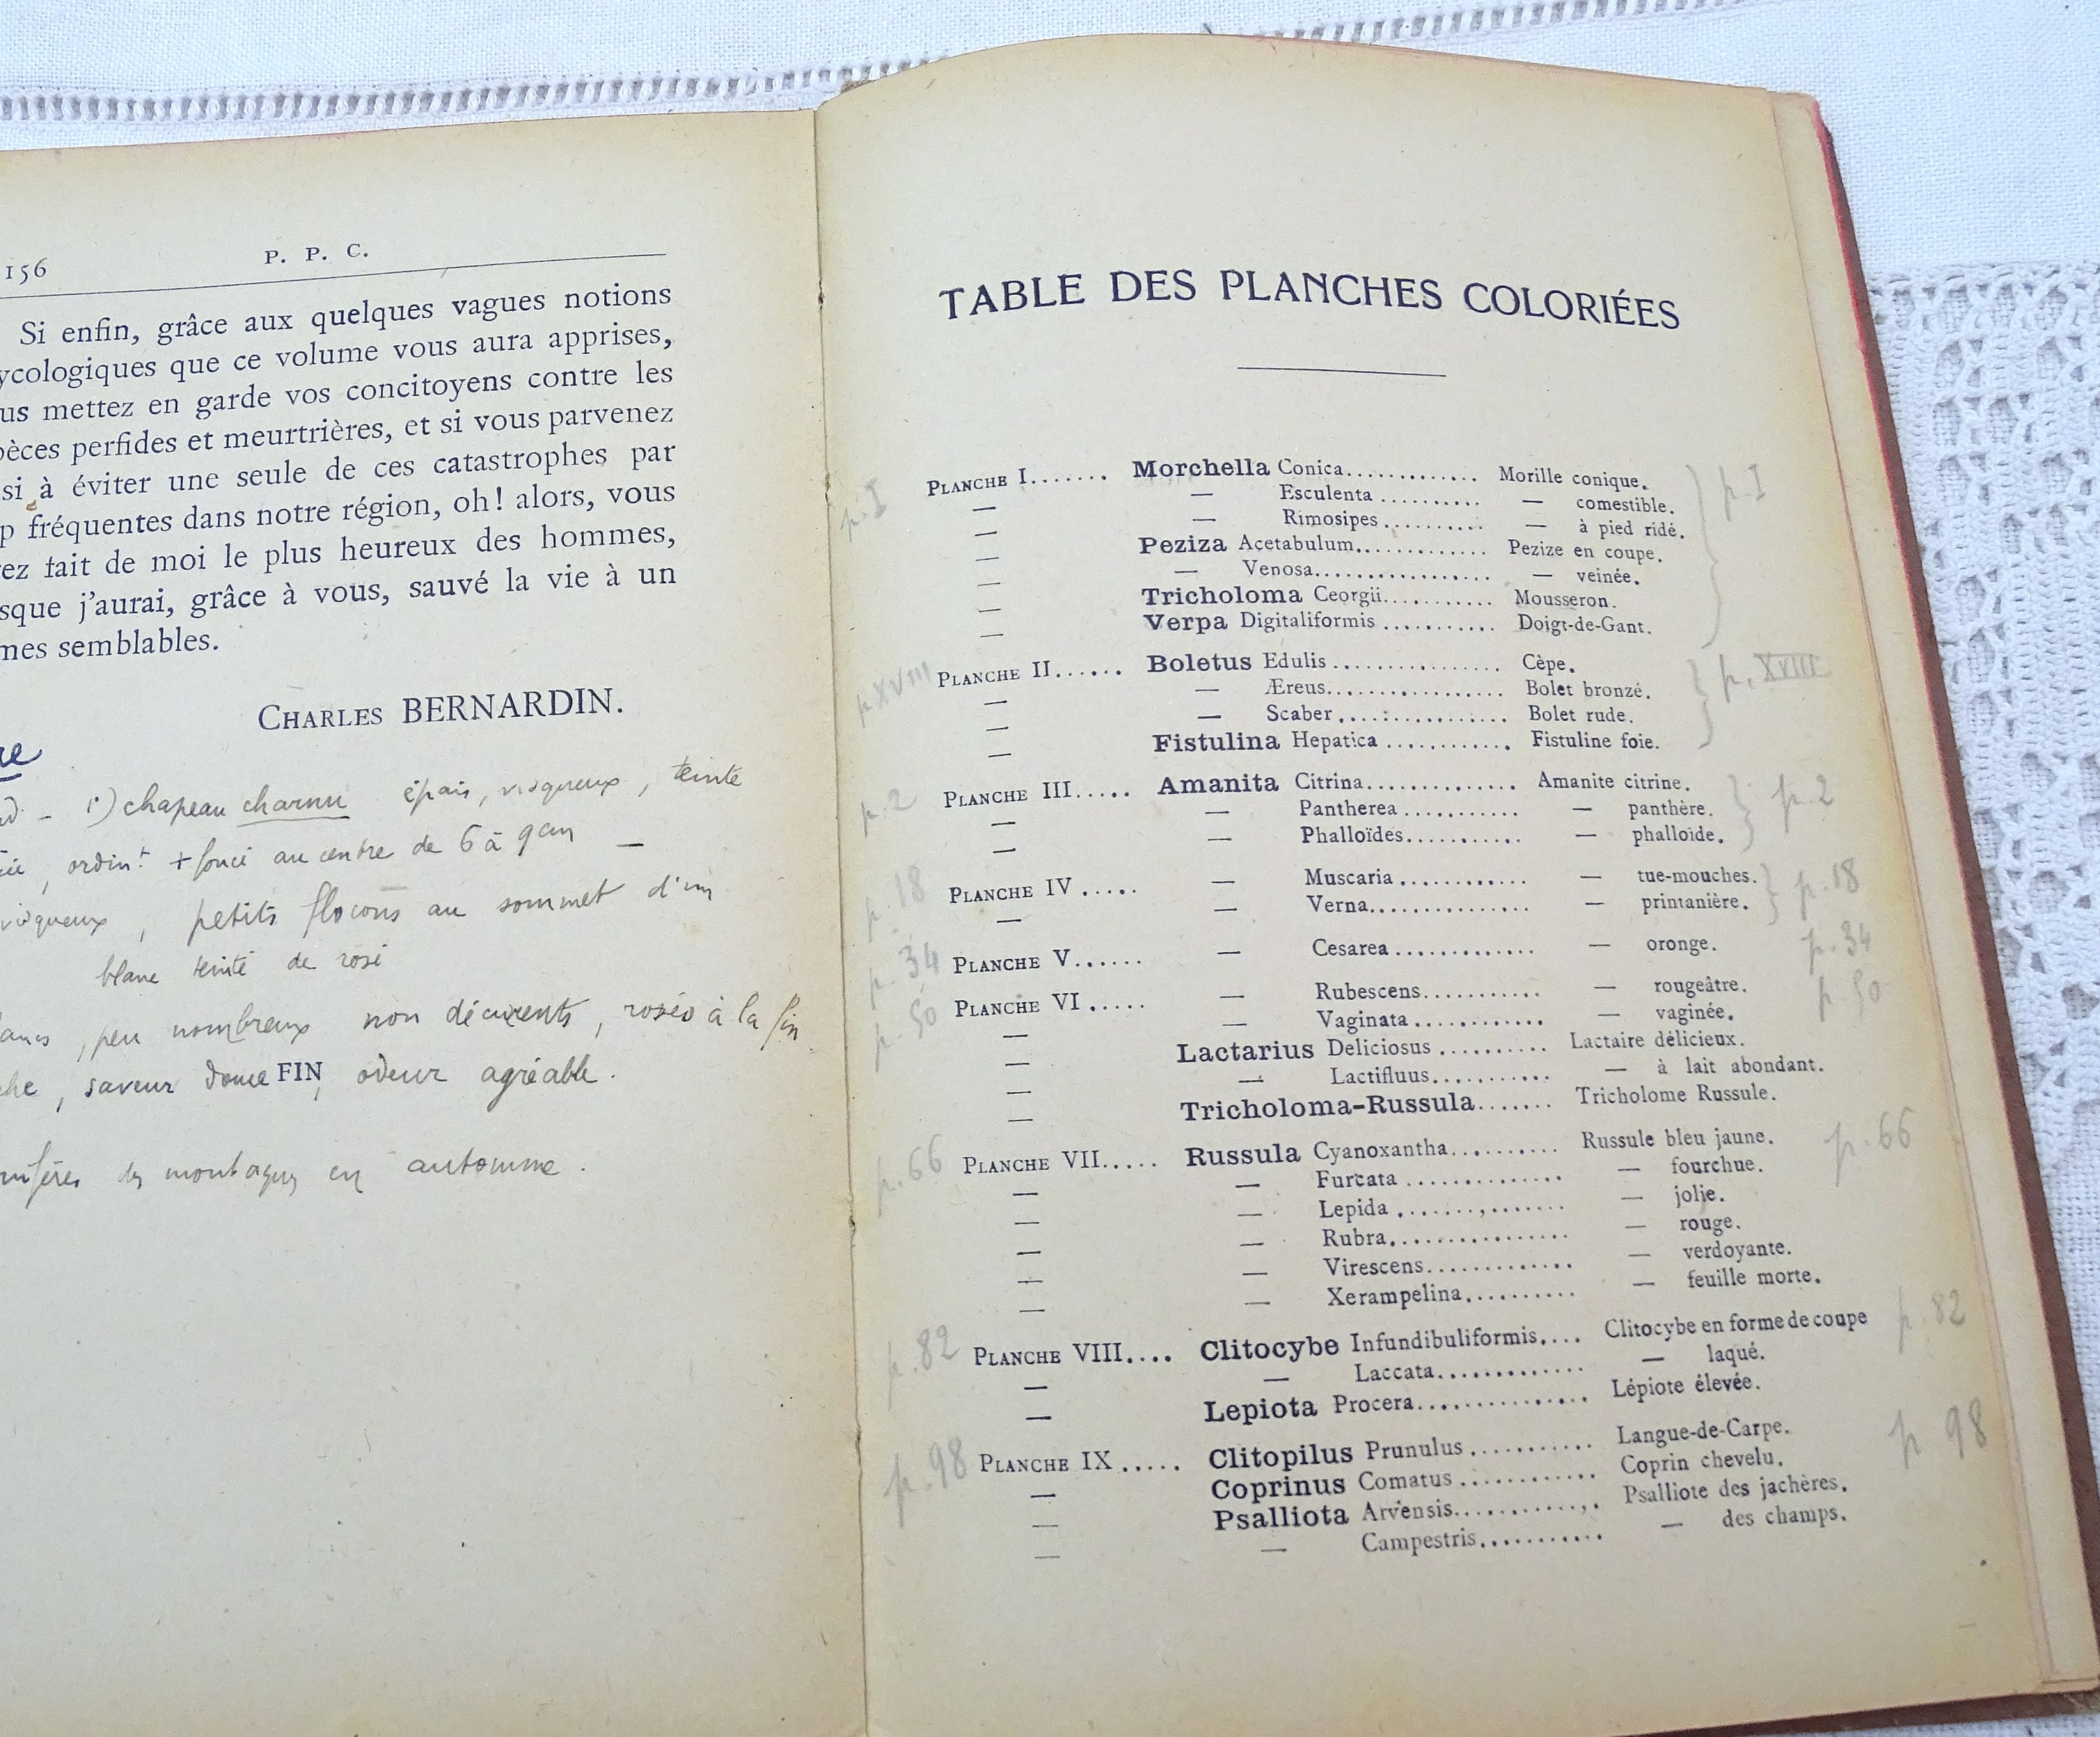 156
P. P. C.
Si enfin, grâce aux quelques vagues notions
ycologiques que ce volume vous aura apprises,
us mettez en garde vos concitoyens contre les
pèces perfides et meurtrières, et si vous parvenez
si à éviter une seule de ces catastrophes par
p fréquentes dans notre région, oh! alors, vous
rez fait de moi le plus heureux des hommes,
sque j'aurai, grâce à vous, sauvé la vie à un
mes semblables.
CHARLES BERNARDIN.
re
1°) chapeau charnu épais, visqueux, teinte
, ordint + foncé au centre de 6 à 9 cm —
visqueux, petits flocons au sommet d'un
blanc teinté de rosé
lancs, peu nombreux non décurrents, rosés à la fin
che, saveur douce FIN, odeur agréable.
nifères des montagnes en automne.
TABLE DES PLANCHES COLORIÉES
p. I PLANCHE I....... Morchella Conica............. Morille conique. p. I
— — Esculenta .......... — comestible.
— — Rimosipes.......... — à pied ridé.
— Peziza Acetabulum............. Pezize en coupe.
— — Venosa.................. — veinée.
— Tricholoma Ceorgii........... Mousseron.
— Verpa Digitaliformis ........... Doigt-de-Gant.
p XVIII PLANCHE II...... Boletus Edulis ................. Cèpe. p. XVIII
— — Æreus.................. Bolet bronzé.
— — Scaber................. Bolet rude.
— Fistulina Hepatica ............ Fistuline foie.
p. 2 PLANCHE III..... Amanita Citrina............... Amanite citrine. p. 2
— — Pantherea ............ — panthère.
— — Phalloïdes............ — phalloïde.
p. 18 PLANCHE IV ..... — Muscaria ............ — tue-mouches. p. 18
— — Verna................ — printanière.
p. 34 PLANCHE V...... — Cesarea.............. — oronge. p. 34
p. 50 PLANCHE VI ..... — Rubescens............ — rougeâtre. p. 50
— — Vaginata ............. — vaginée.
— Lactarius Deliciosus .......... Lactaire délicieux.
— — Lactifluus........... — à lait abondant.
— Tricholoma-Russula....... Tricholome Russule.
p. 66 PLANCHE VII..... Russula Cyanoxantha.......... Russule bleu jaune. p. 66
— — Furcata .............. — fourchue.
— — Lepida ............... — jolie.
— — Rubra................ — rouge.
— — Virescens............. — verdoyante.
— — Xerampelina.......... — feuille morte.
p. 82 PLANCHE VIII.... Clitocybe Infundibuliformis.... Clitocybe en forme de coupe p. 82
— — Laccata............. — laqué.
— Lepiota Procera................ Lépiote élevée.
p. 98 PLANCHE IX ..... Clitopilus Prunulus ........... Langue-de-Carpe. p 98
— Coprinus Comatus ............ Coprin chevelu.
— Psalliota Arvensis............. Psalliote des jachères.
— — Campestris........... — des champs.